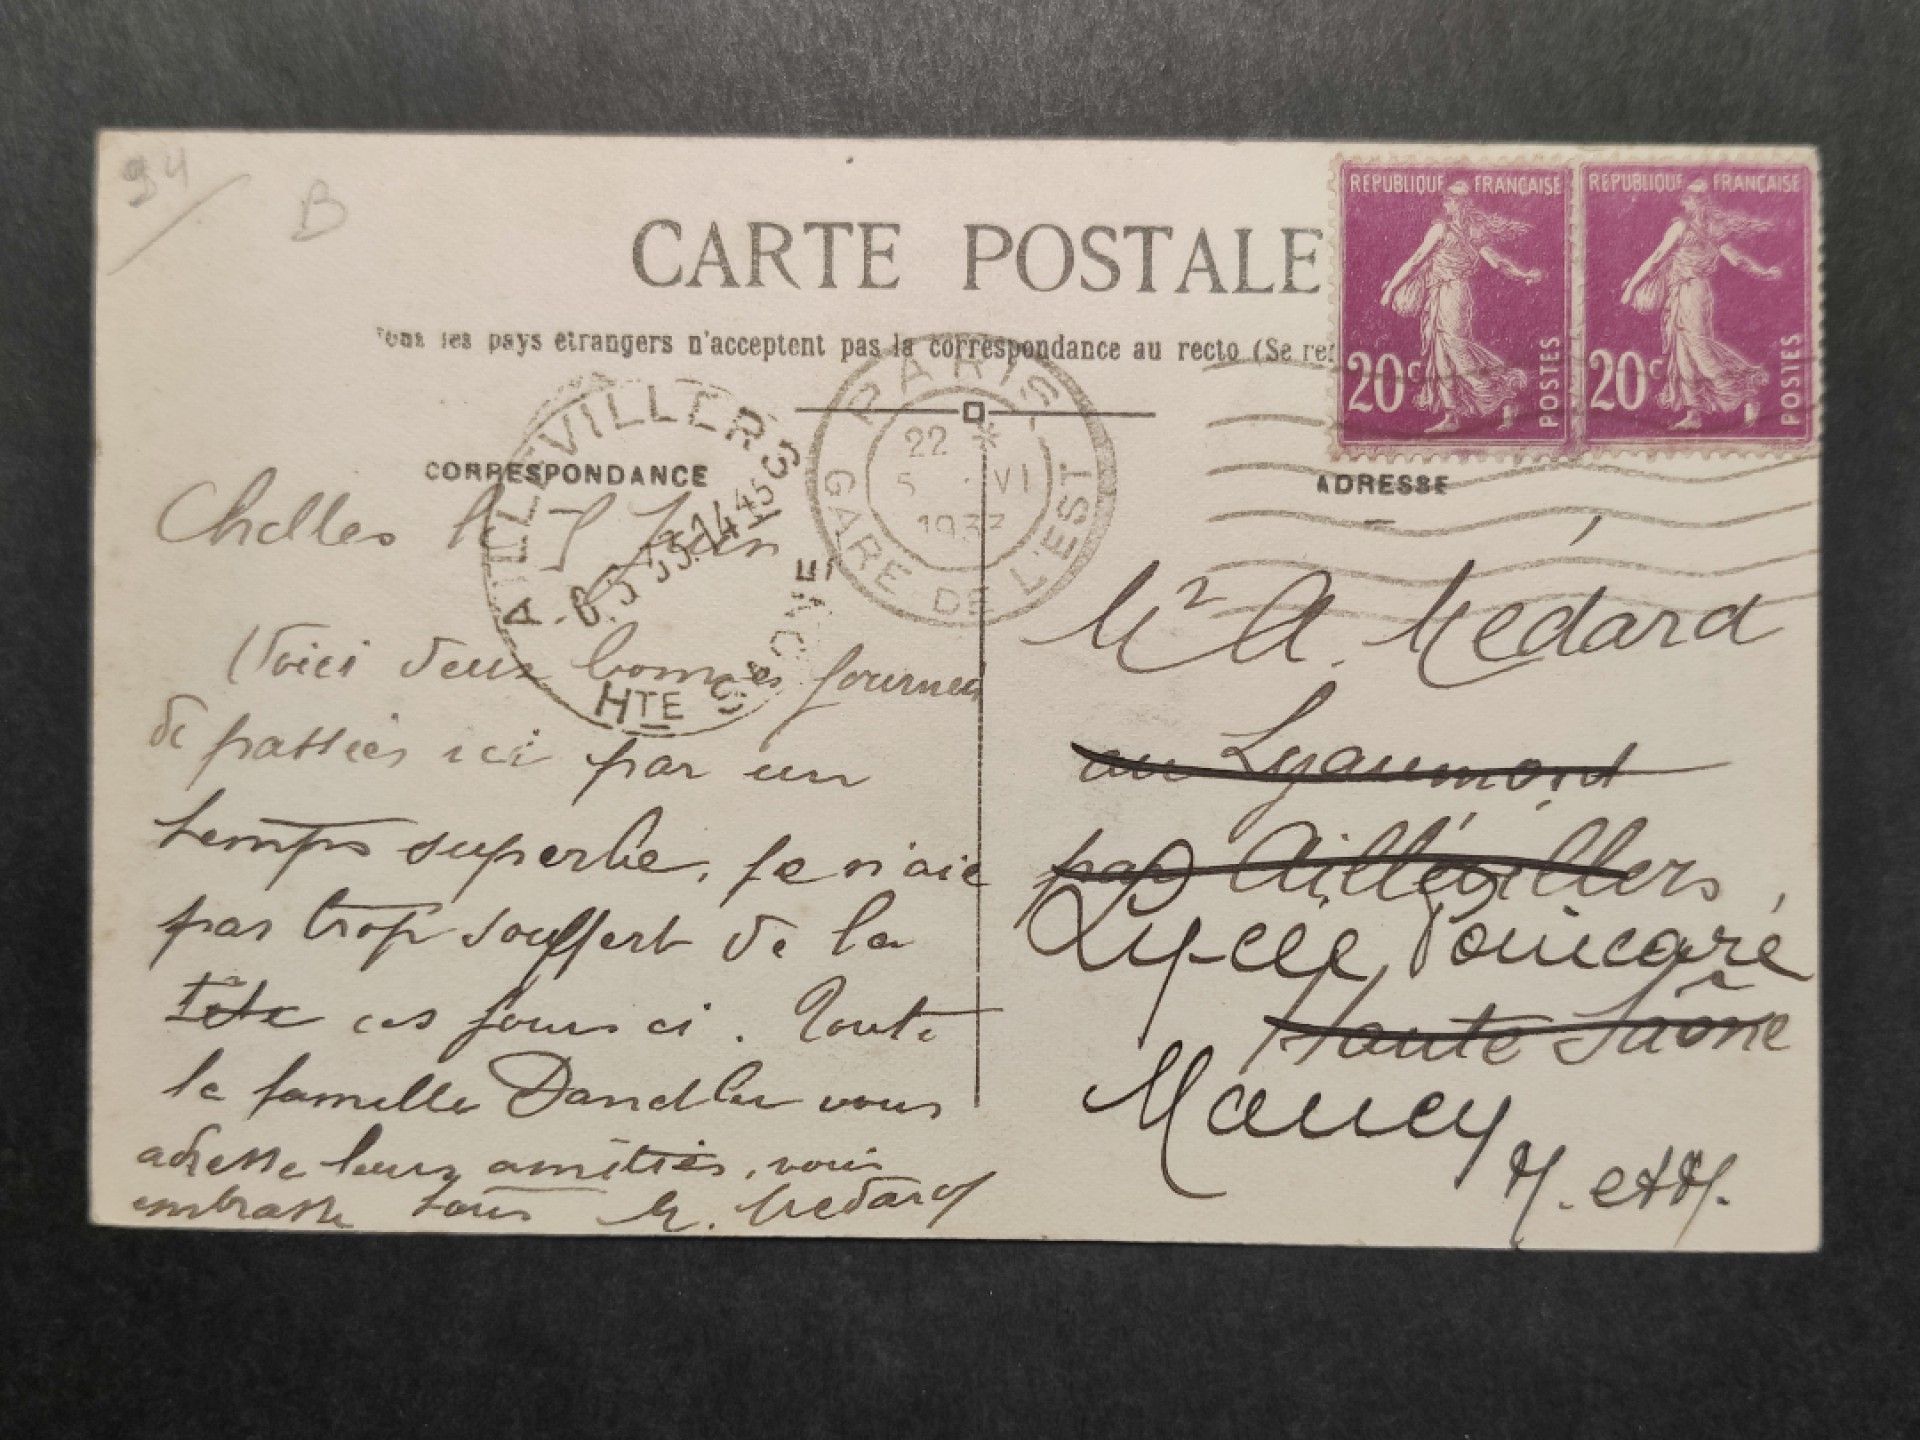 94
B
CARTE POSTALE
Tous les pays étrangers n'acceptent pas la correspondance au recto (Se re
REPUBLIQUE FRANÇAISE
20c
POSTES
REPUBLIQUE FRANÇAISE
20c
POSTES
PARIS
GARE DE L'EST
22 *
5 VI
1933
AILLEVILLERS
HTE
CORRESPONDANCE
ADRESSE
Chelles le 5 Juin
Voici deux bonnes journées
de passées ici par un
temps superbe, je n'ai
pas trop souffert de la
tête ces jours ci. Toute
la famille Dandler vous
adresse leurs amitiés, vous
embrasse tous M. Medard
Mr A. Medard
au Lyaumont
par Aillevillers,
Lycée Poincaré
Haute Saône
Nancy
M. et M.